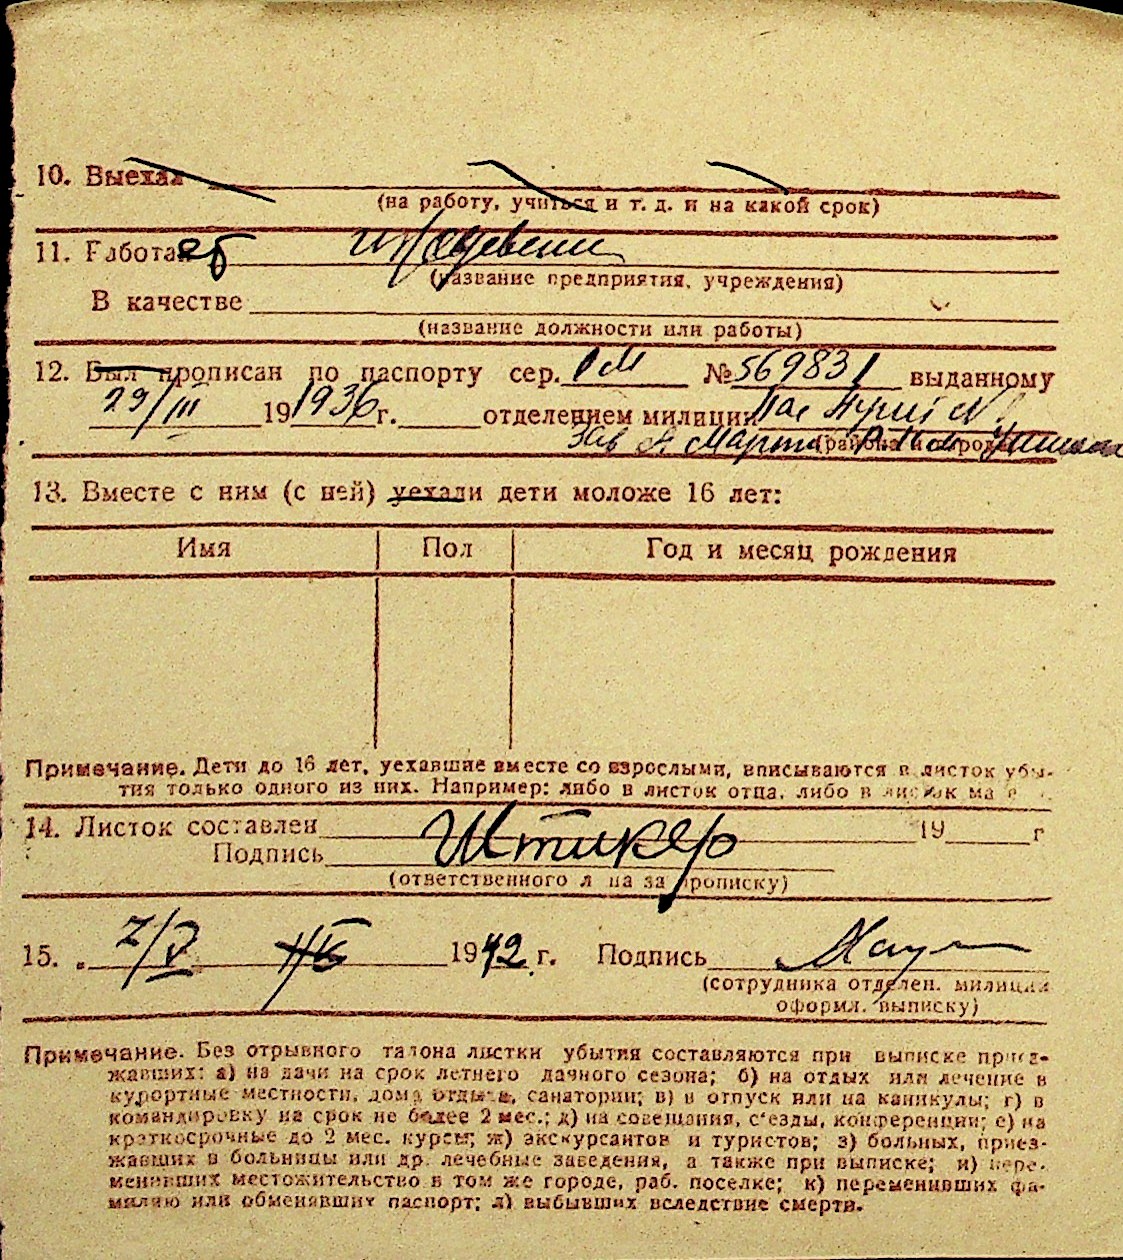 10. Выехал
(на работу, учиться и т. д. и на какой срок)
11. Работал
(название предприятия, учреждения)
В качестве
(название должности или работы)
12. Был прописан по паспорту сер. № 569831 выданному
29/III 19 1936 г. отделением милиции
13. Вместе с ним (с ней) уехали дети моложе 16 лет:
Имя Пол Год и месяц рождения
Примечание. Дети до 16 лет, уехавшие вместе со взрослыми, вписываются в листок убы-
тия только одного из них. Например: либо в листок отца, либо в листок ма
14. Листок составлен 19 г
Подпись Штикер
(ответственного л на за прописку)
15. 1942 г. Подпись
(сотрудника отделен. милиции
оформл. выписку)
Примечание. Без отрывного талона листки убытия составляются при выписке приез-
жавших: а) на дачи на срок летнего дачного сезона; б) на отдых или лечение в
курортные местности, дома отдыха, санатории; в) в отпуск или на каникулы; г) в
командировку на срок не более 2 мес.; д) на совещания, с'езды, конференции; е) на
краткосрочные до 2 мес. курсы; ж) экскурсантов и туристов; з) больных, приез-
жавших в больницы или др. лечебные заведения, а также при выписке; и) пере-
менивших местожительство в том же городе, раб. поселке; к) переменивших фа-
милию или обменявших паспорт; л) выбывших вследствие смерти.